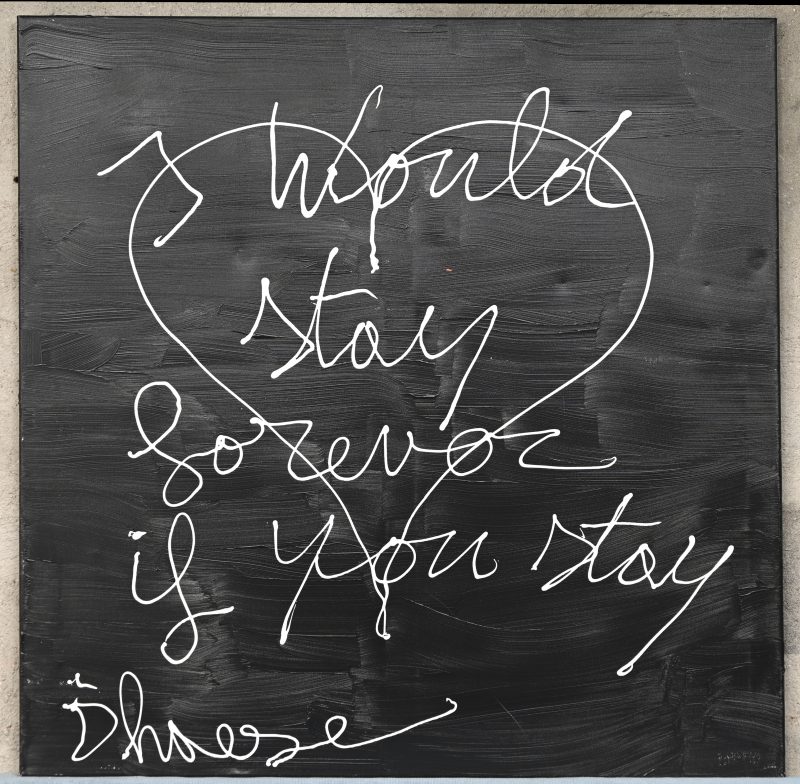 I would
stay
forever
if you stay